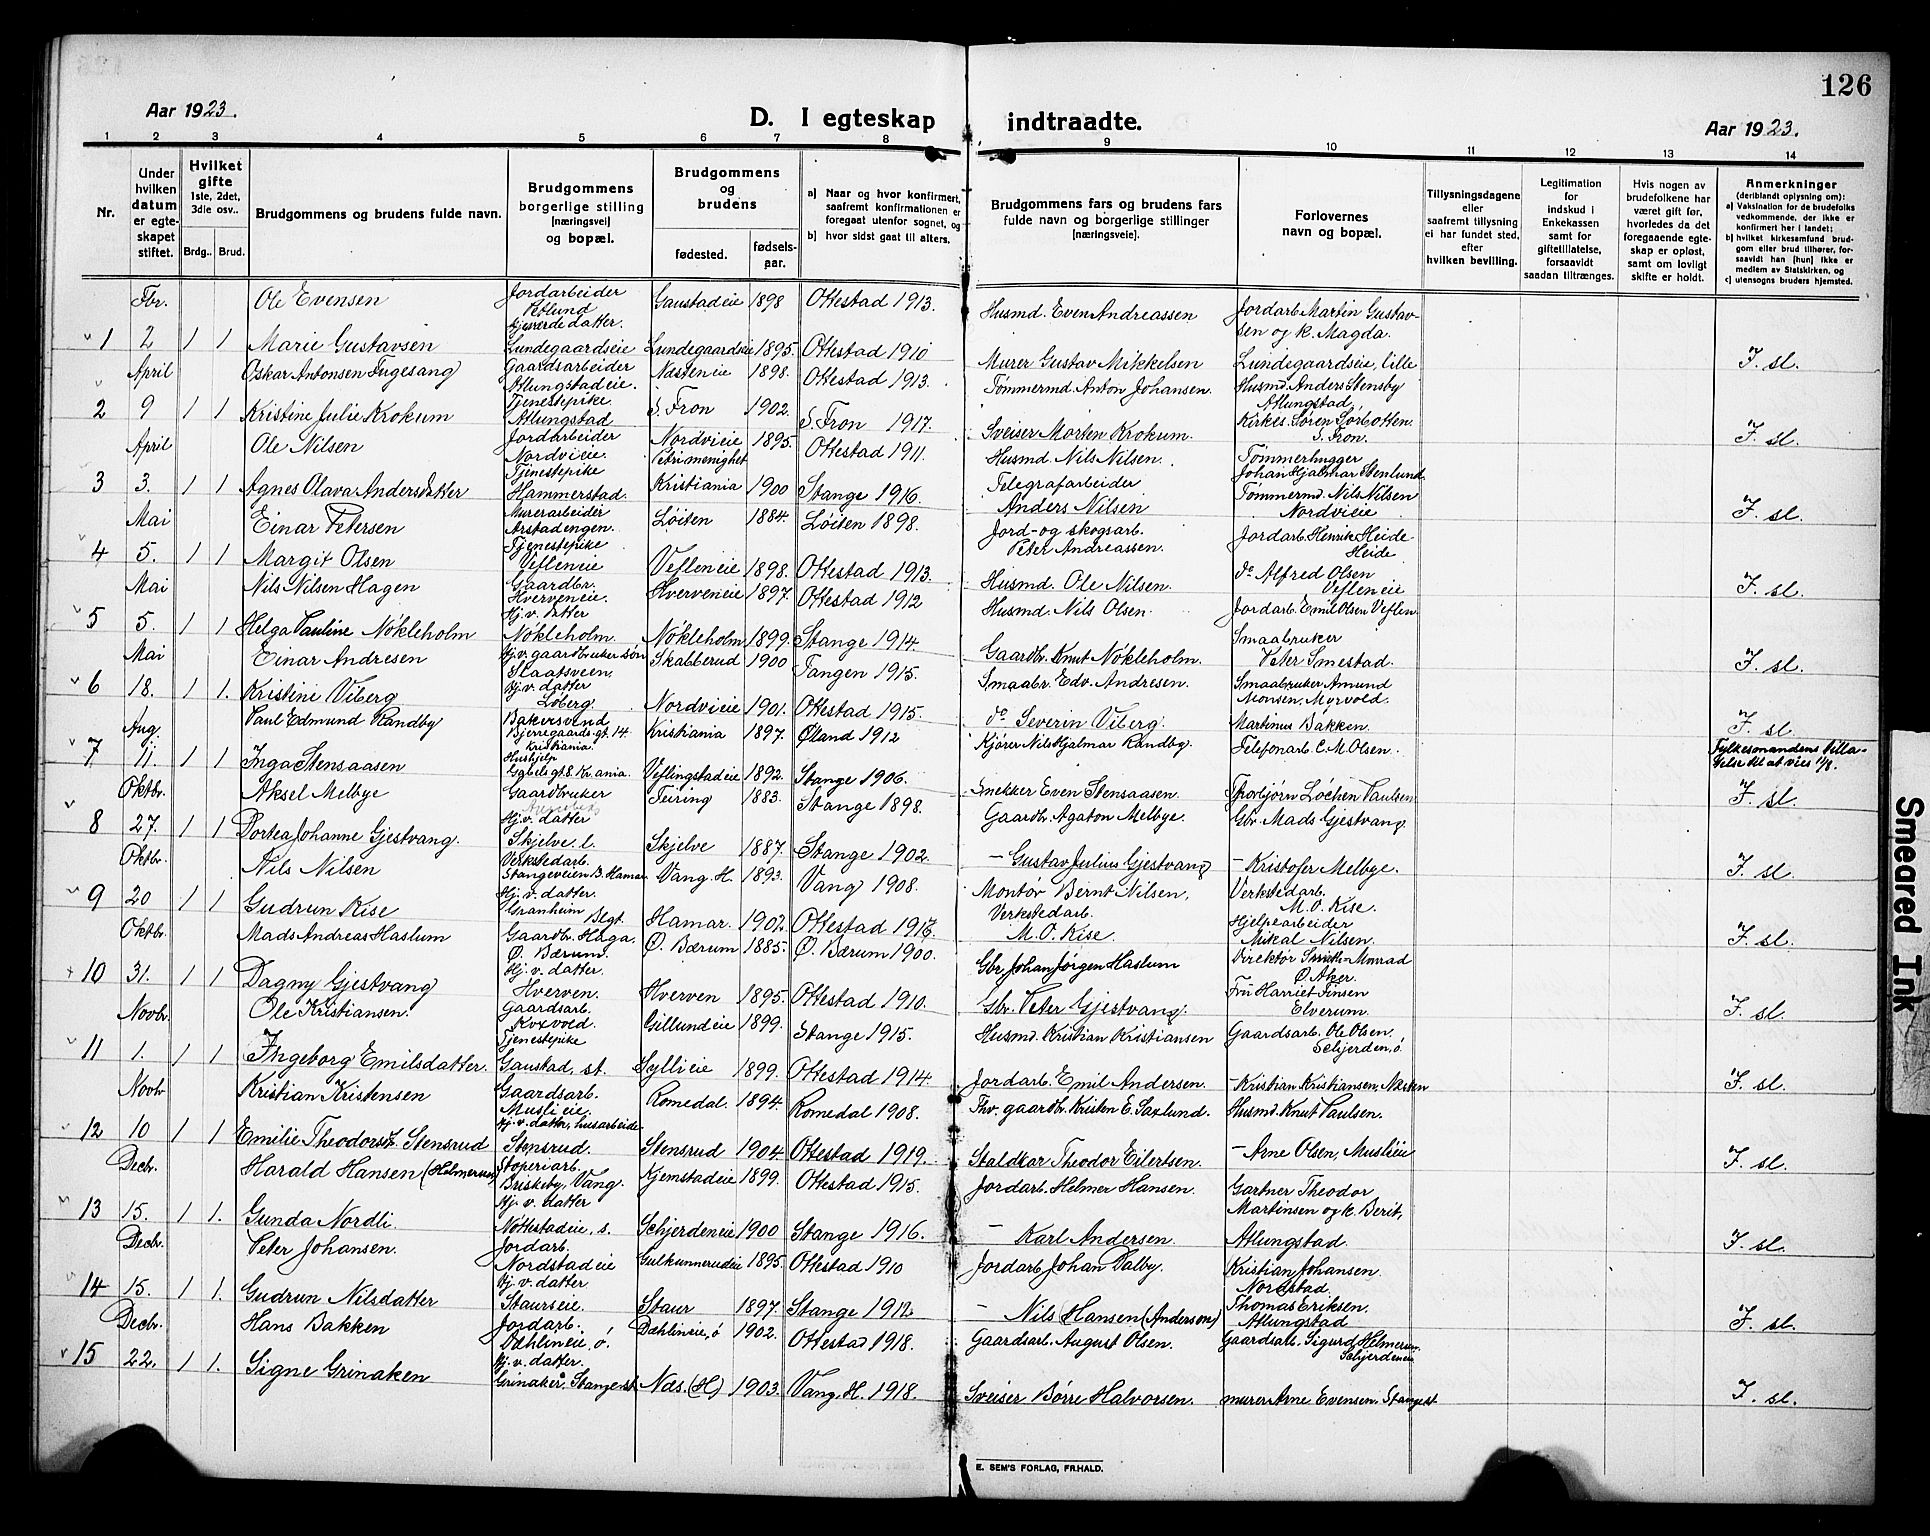 126
Aar 1923.
D. I egteskap indtraadte.
Aar 1923.
1 2 3 4 5 6 7 8 9 10 11 12 13 14
Nr.
Under hvilken datum er egteskapet stiftet.
Hvilket gifte 1ste, 2det, 3die osv..
Brdg.. Brud.
Brudgommens og brudens fulde navn.
Brudgommens borgerlige stilling [næringsvei] og bopæl.
Brudgommens og brudens
fødested. fødselsaar.
a) Naar og hvor konfirmert, saafremt konfirmationen er foregaat utenfor sognet, og
b) hvor sidst gaat til alters.
Brudgommens fars og brudens fars fulde navn og borgerlige stillinger [næringsveie].
Forlovernes navn og bopæl.
Tillysningsdagene eller saafremt tillysning ei har fundet sted, efter hvilken bevilling.
Legitimation for indskud i Enkekassen samt for giftetillatelse, forsaavidt saadan tiltrænges.
Hvis nogen av brudefolkene har været gift før, hvorledes da det foregaaende egteskap er opløst, samt om lovligt skifte er holdt.
Anmerkninger (deriblandt oplysning om):
a) Vaksination for de brudefolks vedkommende, der ikke er konfirmert her i landet;
b) hvilket kirkesamfund brudgom eller brud tilhører, forsaavidt han [hun] ikke er medlem av Statskirken, og
c) utensogns bruders hjemsted.
Fbr. Ole Evensen Jordarbeider Vetlund Gaustadeie 1898 Ottestad 1913. Husmd. Even Andreassen Jordarb. Martin Gustavsen og k. Magda.
1 2 1 1 Marie Gustavsen Gjæterdatter. Lundegaardseie Lundegaardseie 1895. Ottestad 1910 Murer Gustav Mikkelsen Lundegaardseie, lille F. sl.
April Oskar Antonsen Fugesang Gaardsarbeider Atlungstadeie. Næsteneie 1898. Ottestad 1913. Tømmermd. Anton Johansen. Husmd. Anders Stensby Atlungstad.
2 9 1 1 Kristine Julie Krokum Tjenestepike Atlungstad S. Fron 1902. S. Fron 1917. Sveiser Morten Krokum. Kirkes. Søren Sørbotten. S. Fron. F. sl.
April Ole Nilsen Jordarbeider Nordvieie. Nordvieie 1895. Ottestad 1911. Husmd. Nils Nilsen. Tømmerhugger Johan Hjalmar Stenlund
3 3. 1 1 Agnes Olava Andersdatter Tjenestepike Hammerstad. Petri menighet Kristiania 1900 Stange 1916. Telegrafarbeider Anders Nilsen Tømmermd. Nils Nilsen Nordvieie F. sl.
Mai Einar Petersen Murerarbeider Arstadengen. Løiten 1884. Løiten 1898. Jord- og skogsarb. Peter Andreassen. Jordarb. Henrik Heide Heide
4 5. 1 1 Margit Olsen Tjenestepike Vefleneie Vefleneie 1898. Ottestad 1913. Husmd. Ole Nilsen. do Alfred Olsen Vefleneie F. sl.
Mai Nils Nilsen Hagen Gaardbr. Hverveneie. Hverveneie 1897. Ottestad 1912 Husmd. Nils Olsen. Jordarb. Emil Olsen Veflen.
5 5. 1 1 Helga Pauline Nökleholm Hj. v. datter Nökleholm. Nökleholm 1899. Stange 1914. Gaardbr. Knut Nökleholm. Smaabruker Peter Smestad. F. sl.
Mai Einar Andresen Hj. v. gaardbrukersøn Slaatsveen. Skabberud 1900 Tangen 1915. Smaabr. Edv. Andresen. Smaabruker Amund Monsen, Myrvold.
6 18. 1 1. Kristine Viberg Hj. v. datter Løberg. Nordvieie 1901. Ottestad 1915. do Severin Viberg. Martinus Bakken. F. sl.
Aug. Paul Edmund Randby Bakersvend Bjerregaards gt. 14. Kristiania Kristiania 1897. Øland 1912 Kjører Nils Hjalmar Randby. Telefonarb. C. M. Olsen.
7 11. 1 1 Inga Stensaasen Hushjelp Gabels gt. 8. Kr.ania. Veflingstadeie 1892. Stange 1906. Snekker Even Stensaasen Thorbjørn Løchen Paulsen Fylkesmandens tillatelse til at vies 11/8. F. sl.
Oktbr. Aksel Melbye Gaardbruker Feiring 1883. Stange 1898. Gaardbr. Agaton Melbye. Gbr. Mads Gjestvang.
8 27. 1 1 Dortea Johanne Gjestvang. Hj. v. datter Skjelve. l. Skjelve 1887. Stange 1902. – Gustav Julius Gjestvang – Kristofer Melbye. F. sl.
Oktbr. Nils Nilsen Verkstedarb. Stangeveien B. Hamar Vang. H. 1893. Vang 1908. Montør Bernt Nilsen. Verkstedarb. M. O. Kise.
9 20 1 1 Gudrun Kise Hj. v. datter. Granheim Hamar. 1902. Ottestad 1917. Verkstedarb. M. O. Kise. Hjelpearbeider Mikal Nilsen. F. sl.
Oktbr. Mads Andreas Haslum Gaardbr. Haga. Ø. Bærum. Ø. Bærum 1885. Ø. Bærum 1900. Gbr. Johan Jørgen Haslum Direktør Smith-Monrad Ø. Aker.
10 31. 1 1 Dagny Gjestvang Hj. v. datter. Hverven. Hverven 1895. Ottestad 1910. Gbr. Peter Gjestvang. Fru Harriet Finsen Elverum. F. sl.
Novbr. Ole Kristiansen. Gaardsarb. Kvævold. Gillundeie 1899. Stange 1915. Husmd. Kristian Kristiansen Gaardsarb. Ole Olsen, Schjerden, ø.
11 1. 1 1 Ingeborg Emilsdatter. Tjenestepike Gaustad, st. Hyllieie 1899. Ottestad 1914. Jordarb. Emil Andersen. – Kristian Kristiansen, Næsten F. sl.
Novbr Kristian Kristensen Gaardsarb. Muslieie. Romedal. 1894. Romedal 1908. Fhv. gaardbr. Kristen E. Saxlund. Husmd. Knut Paulsen.
12 10 1 1 Emilie Theodorsd. Stensrud Hj. v. datter, husarbeide. Stensrud. Stensrud 1904. Ottestad 1919. Staldkar Theodor Eilertsen. – Arne Olsen, Muslieie F. sl.
Decbr. Harald Hansen (Helmersen) Støperiarb. Briskeby, Vang. Kjemstadeie 1899. Ottestad 1915. Jordarb. Helmer Hansen. Gartner Theodor Martinsen og k. Berit,
13 15. 1 1. Gunda Nordli. Hj. v. datter Nøttestadeie, s. Schjerdeneie 1900 Stange 1916. – Karl Andersen Atlungstad. F. sl.
Decbr. Peter Johansen. Jordarb. Nordstadeie Gulkunnerudeie 1895. Ottestad 1910 Jordarb. Johan Dalby. Kristian Johansen. Nordstad.
14 15. 1 1. Gudrun Nilsdatter Hj. v. datter Staurseie. Staur 1897. Stange 1912. – Nils Hansen (Anderson) Thomas Eriksen. Atlungstad F. sl.
Decbr. Hans Bakken Jordarb. Dæhlineie, ø. Dæhlineie, ø 1902. Ottestad 1918. Gaardsarb. August Olsen. Gaardsarb. Sigurd Helmersen Schjerdeneie
15 22. 1 1. Signe Grinaken Hj. v. datter. Grinaker, Stange st. Næs. (H) 1903. Vang. H. 1918. Sveiser Børre Halvorsen. murer Arne Evensen. Stange st F. sl.
E. SEM'S FORLAG, FR.HALD.
Smeared Ink